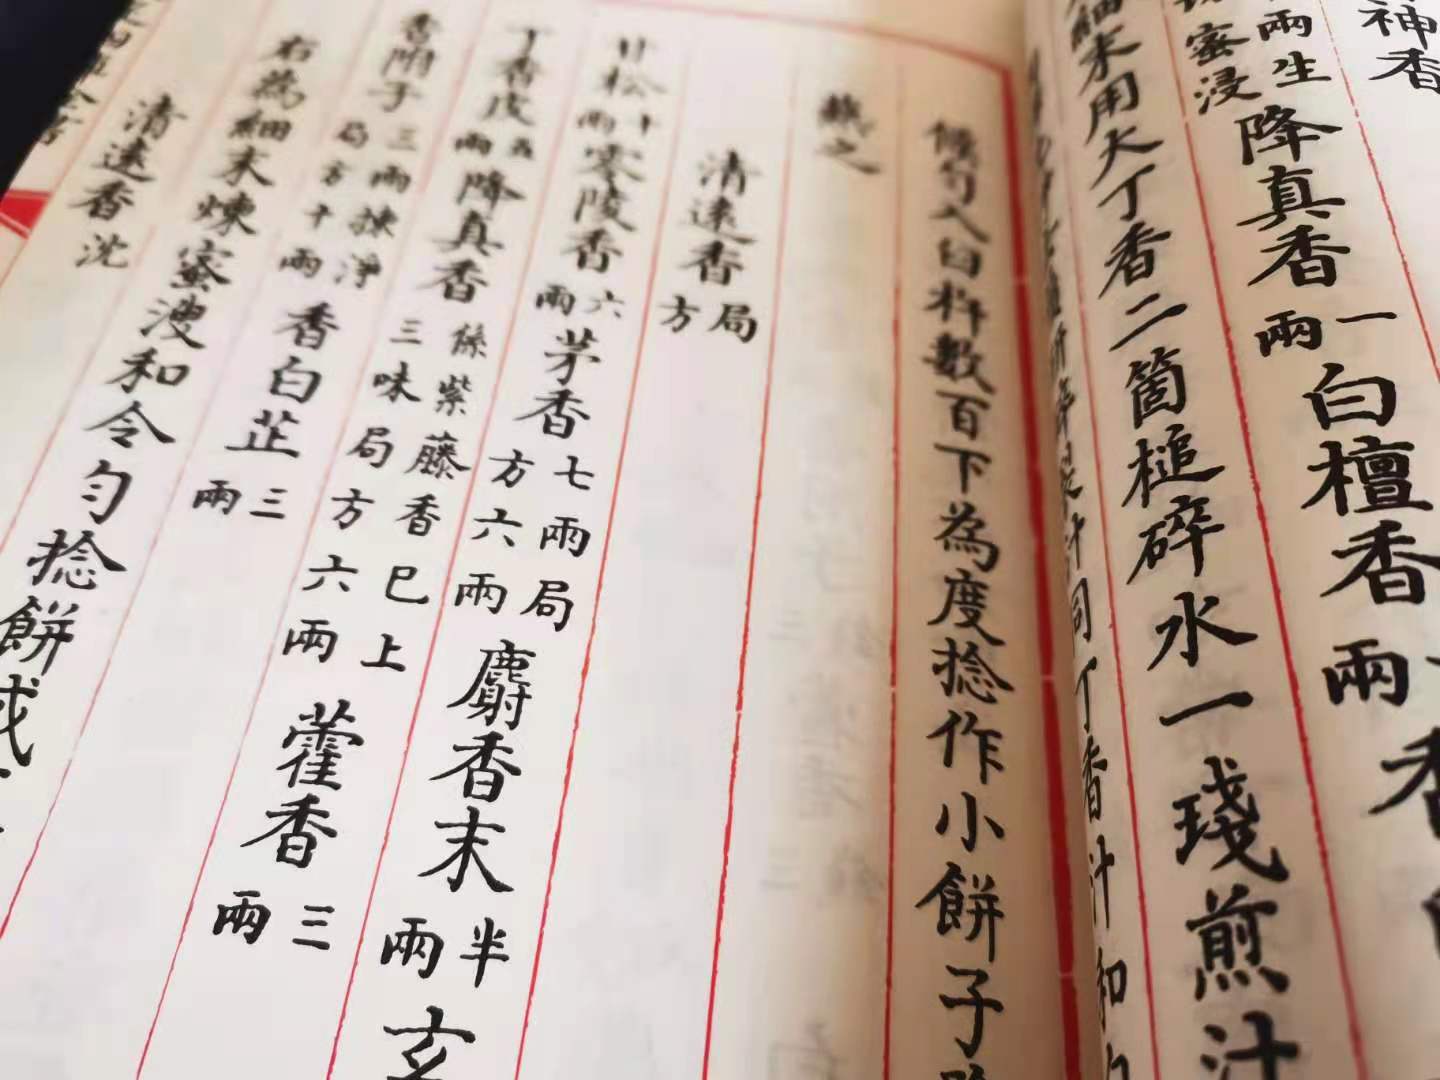 神香
兩生蜜浸降真香一兩白檀香兩香
細末用大丁香二箇槌碎水一琖煎汁
同丁香汁和
候勻入臼杵數百下為度捻作小餅子
藏之
清遠香局方
甘松十兩零陵香六兩茅香七兩局方六兩麝香末半兩玄
丁香皮五兩降真香係紫藤香已上三味局方六兩藿香三兩
香附子三兩揀淨局方十兩香白芷三兩
右為細末煉蜜溲和令勻捻餅或
清遠香沈
全書